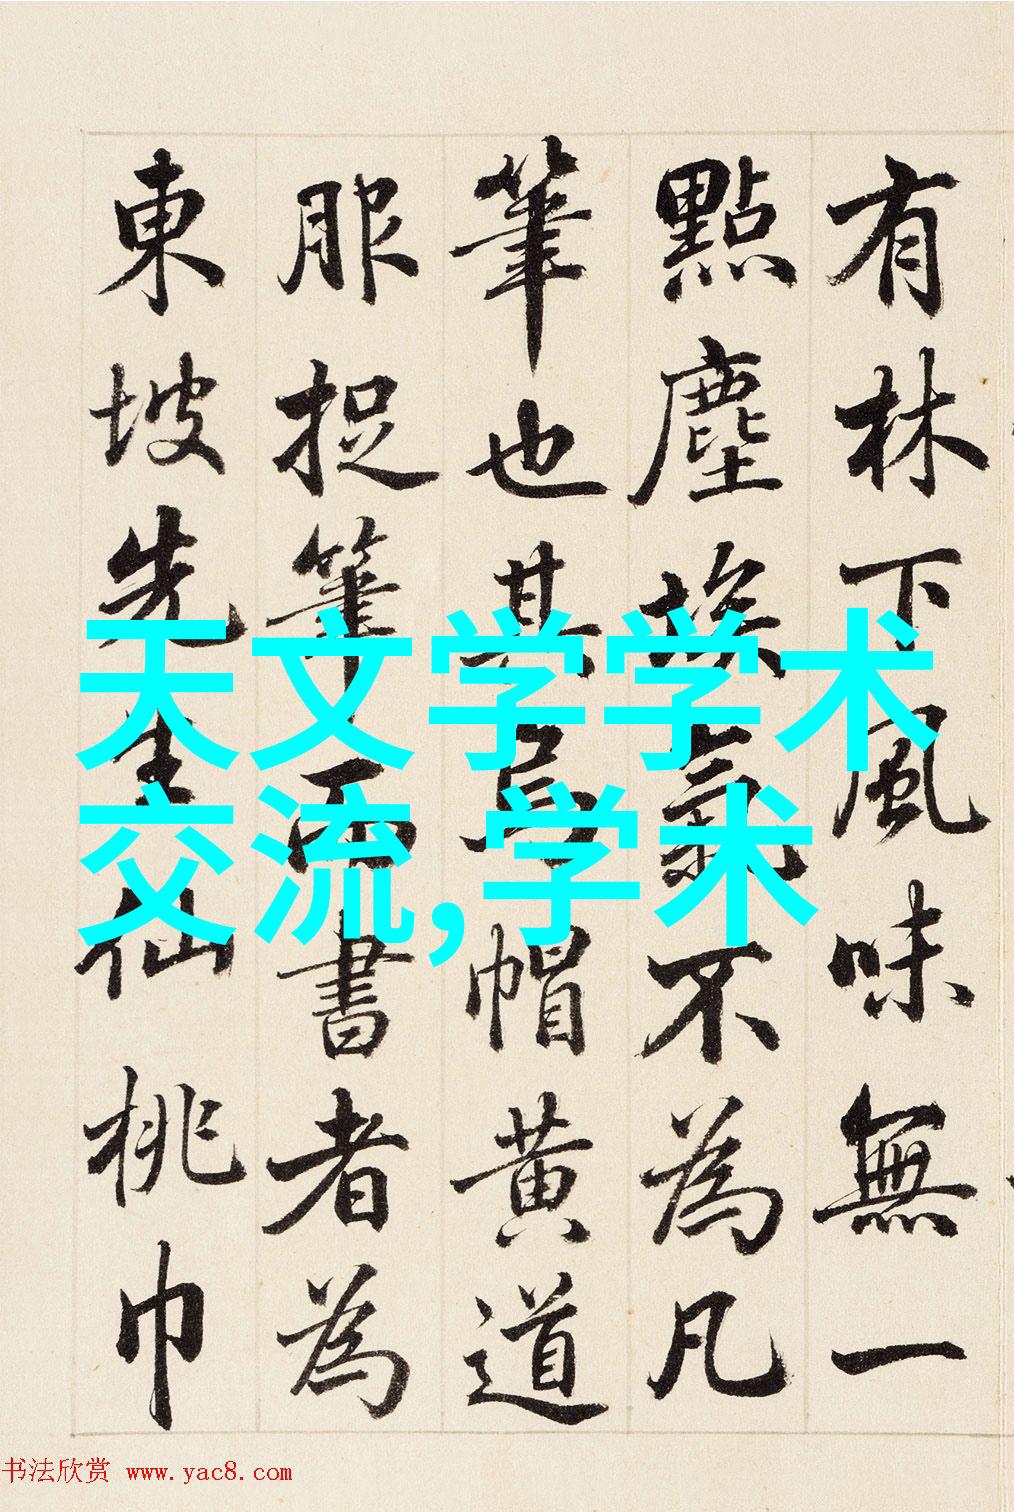 有林下風味無一
點塵埃氣不為凡
筆也其烏帽黃道
服捉筆而書者為
東坡先生仙桃巾
天文学学术
交流,学术
书法欣赏 www.yac8.com